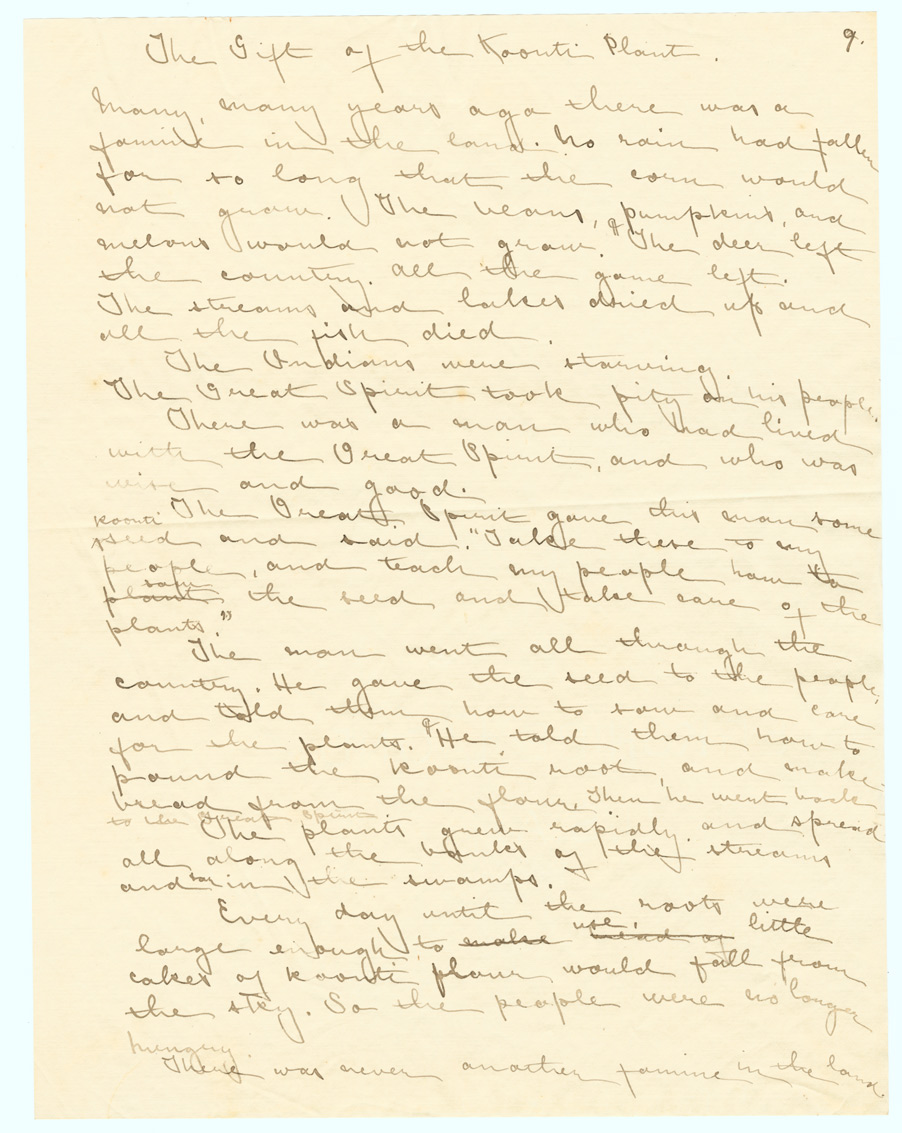 The Gift of the Koonti Plant. 9.
Many, many years ago there was a
famine in the land. No rain had fallen
for so long that the corn would
not grow. The beans, pumpkins, and
melons would not grow. ¶ The deer left
the country. All the game left.
The streams and lakes dried up and
all the fish died.
The Indians were starving.
The Great Spirit took pity on his people.
There was a man who had lived
with the Great Spirit, and who was
wise and good.
The Great Spirit gave this man some
koonti
seed and said. "Take these to my
people, and teach my people how to
sow
plant the seed and take care of the
plants."
The man went all through the
country. He gave the seed to the people,
and told them how to sow and care
for the plants. ¶ He told them how to
pound the koonti root, and make
bread from the flour. Then he went back
to the Great Spirit
The plants grew rapidly and spread
all along the banks of the streams
and in the swamps.
Every day until the roots were
large enough to make use, bread of little
cakes of koonti flour would fall from
the sky. So the people were no longer
hungry.
There was never another famine in the land.